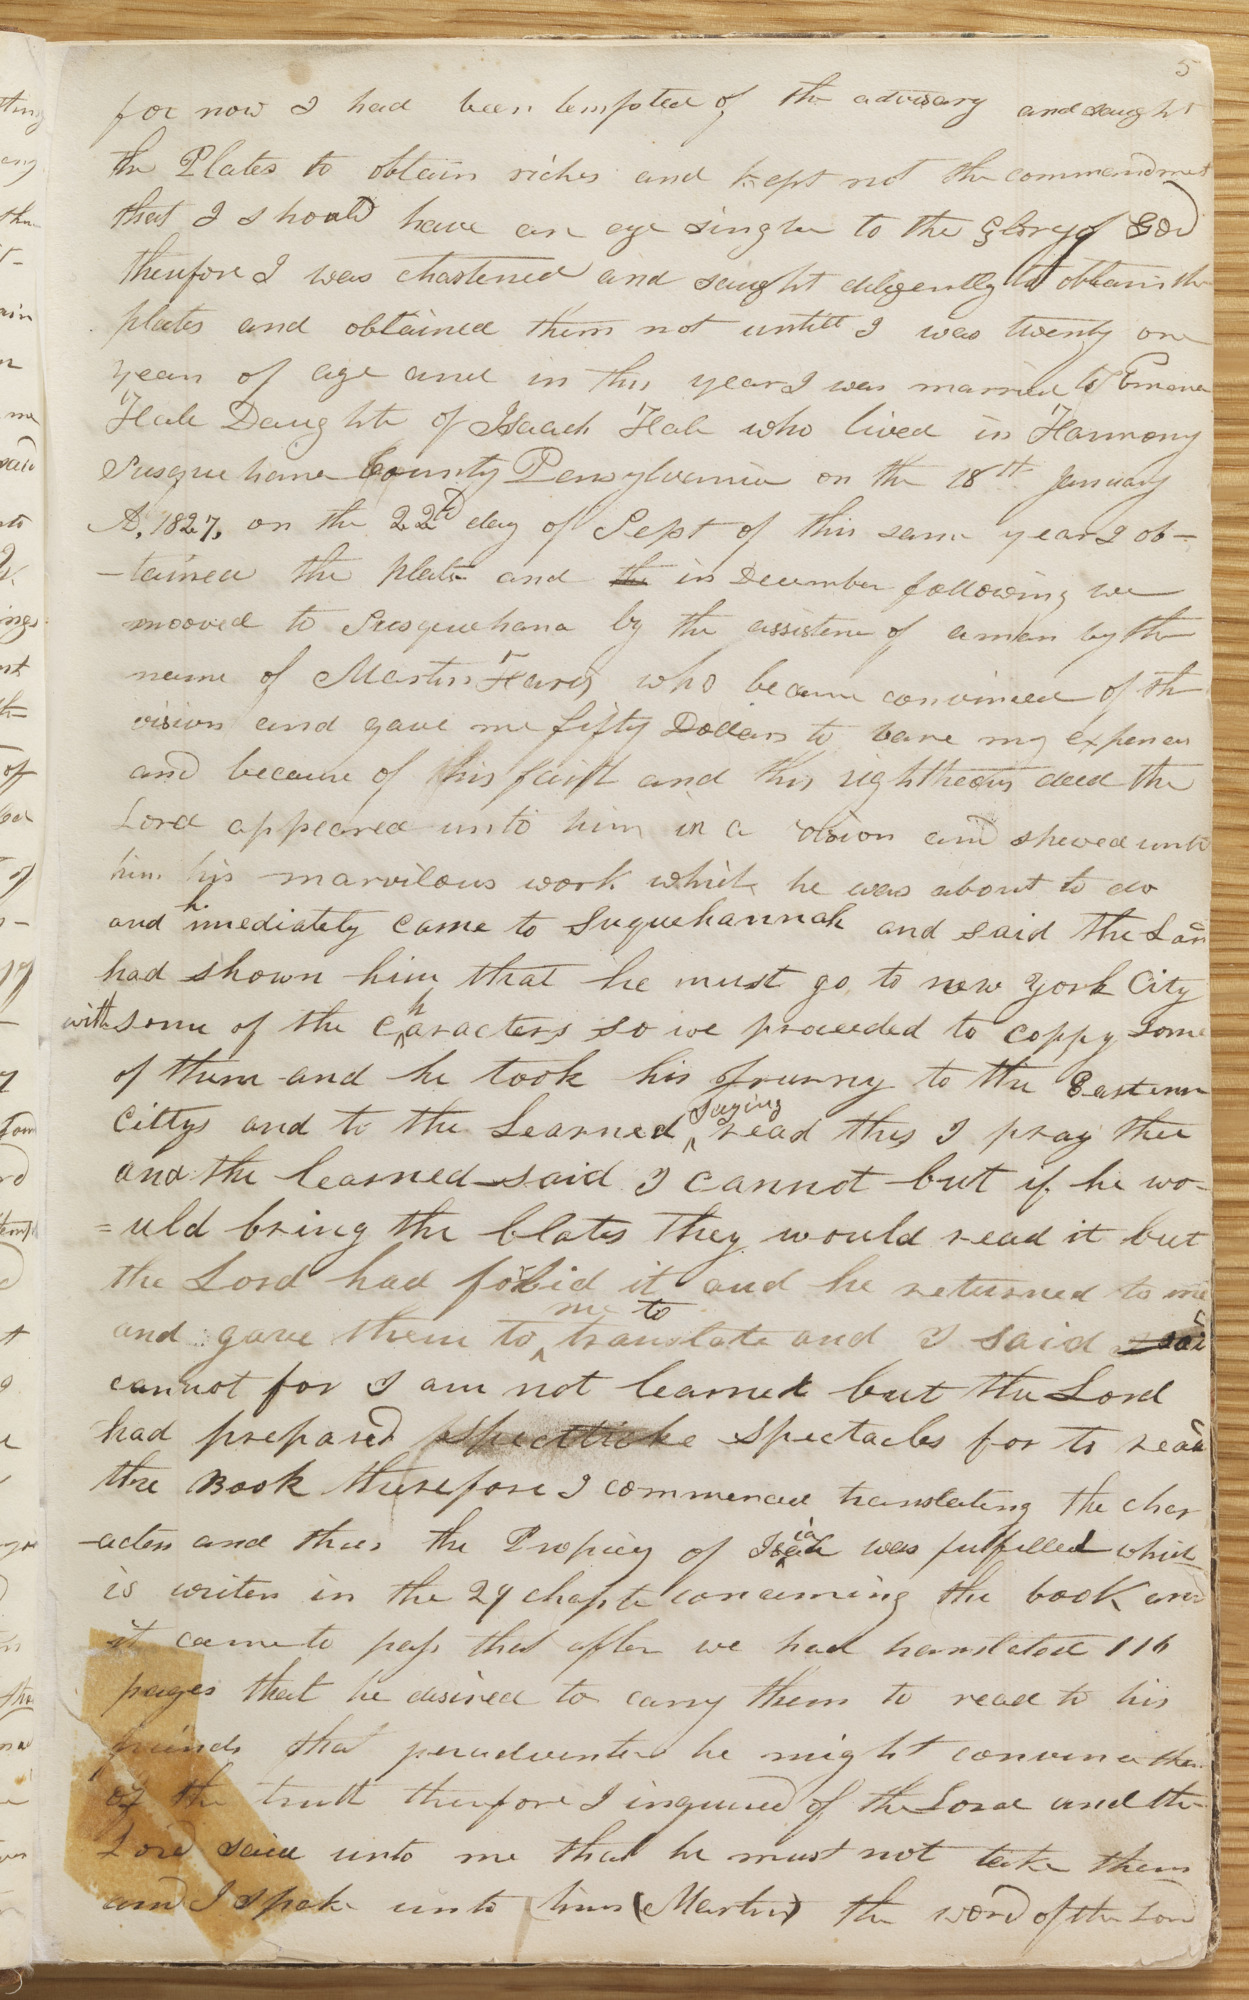 5
for now I had been tempted of the advisary and saught
the Plates to obtain riches and kept not the commandment
that I should have an eye single to the Glory of God
therefore I was chastened and saught diligently to obtain the
plates and obtained them not untill I was twenty one
years of age and in this year I was married to Emma
Hale Daughter of Isaach Hale who lived in Harmony
Susquehana County Pensylvania on the 18th January
A, 1827, on the 22d day of Sept of this same year I ob-
-tained the plates and the in December following we
mooved to Susquehana by the assistence of a man by the
name of Martin Haris who became convinced of the
vision and gave me fifty Dollars to bare my expences
and because of this faith and this rightheous deed the
Lord appeared unto him in a vision and shewed unto
him his marvilous work which he was about to do
and h imediately came to Suquehannah and said the Lord
had shown him that he must go to new York City
with some of the characters so we proceeded to coppy some
of them and he took his Journy to the Eastern
Cittys and to the Learned saying read this I pray thee
and the learned said I cannot but if he wo-
=uld bring the blates they would read it but
the Lord had forbid it and he returned to me
and gave them to me to translate and I said I said
cannot for I am not learned but the Lord
had prepared spectticke spectacles for to read
the Book therefore I commenced translating the char
-acters and thus the Propicy of Isaiah was fulfilled which
is writen in the 29 chapter concerning the book and
it came to pass that after we had translated 116
pages that he desired to carry them to read to his
friends that peradventure he might convince them
of the truth therefore I inquired of the Lord and the
Lord said unto me that he must not take them
and I spake unto him (Martin) the word of the Lord